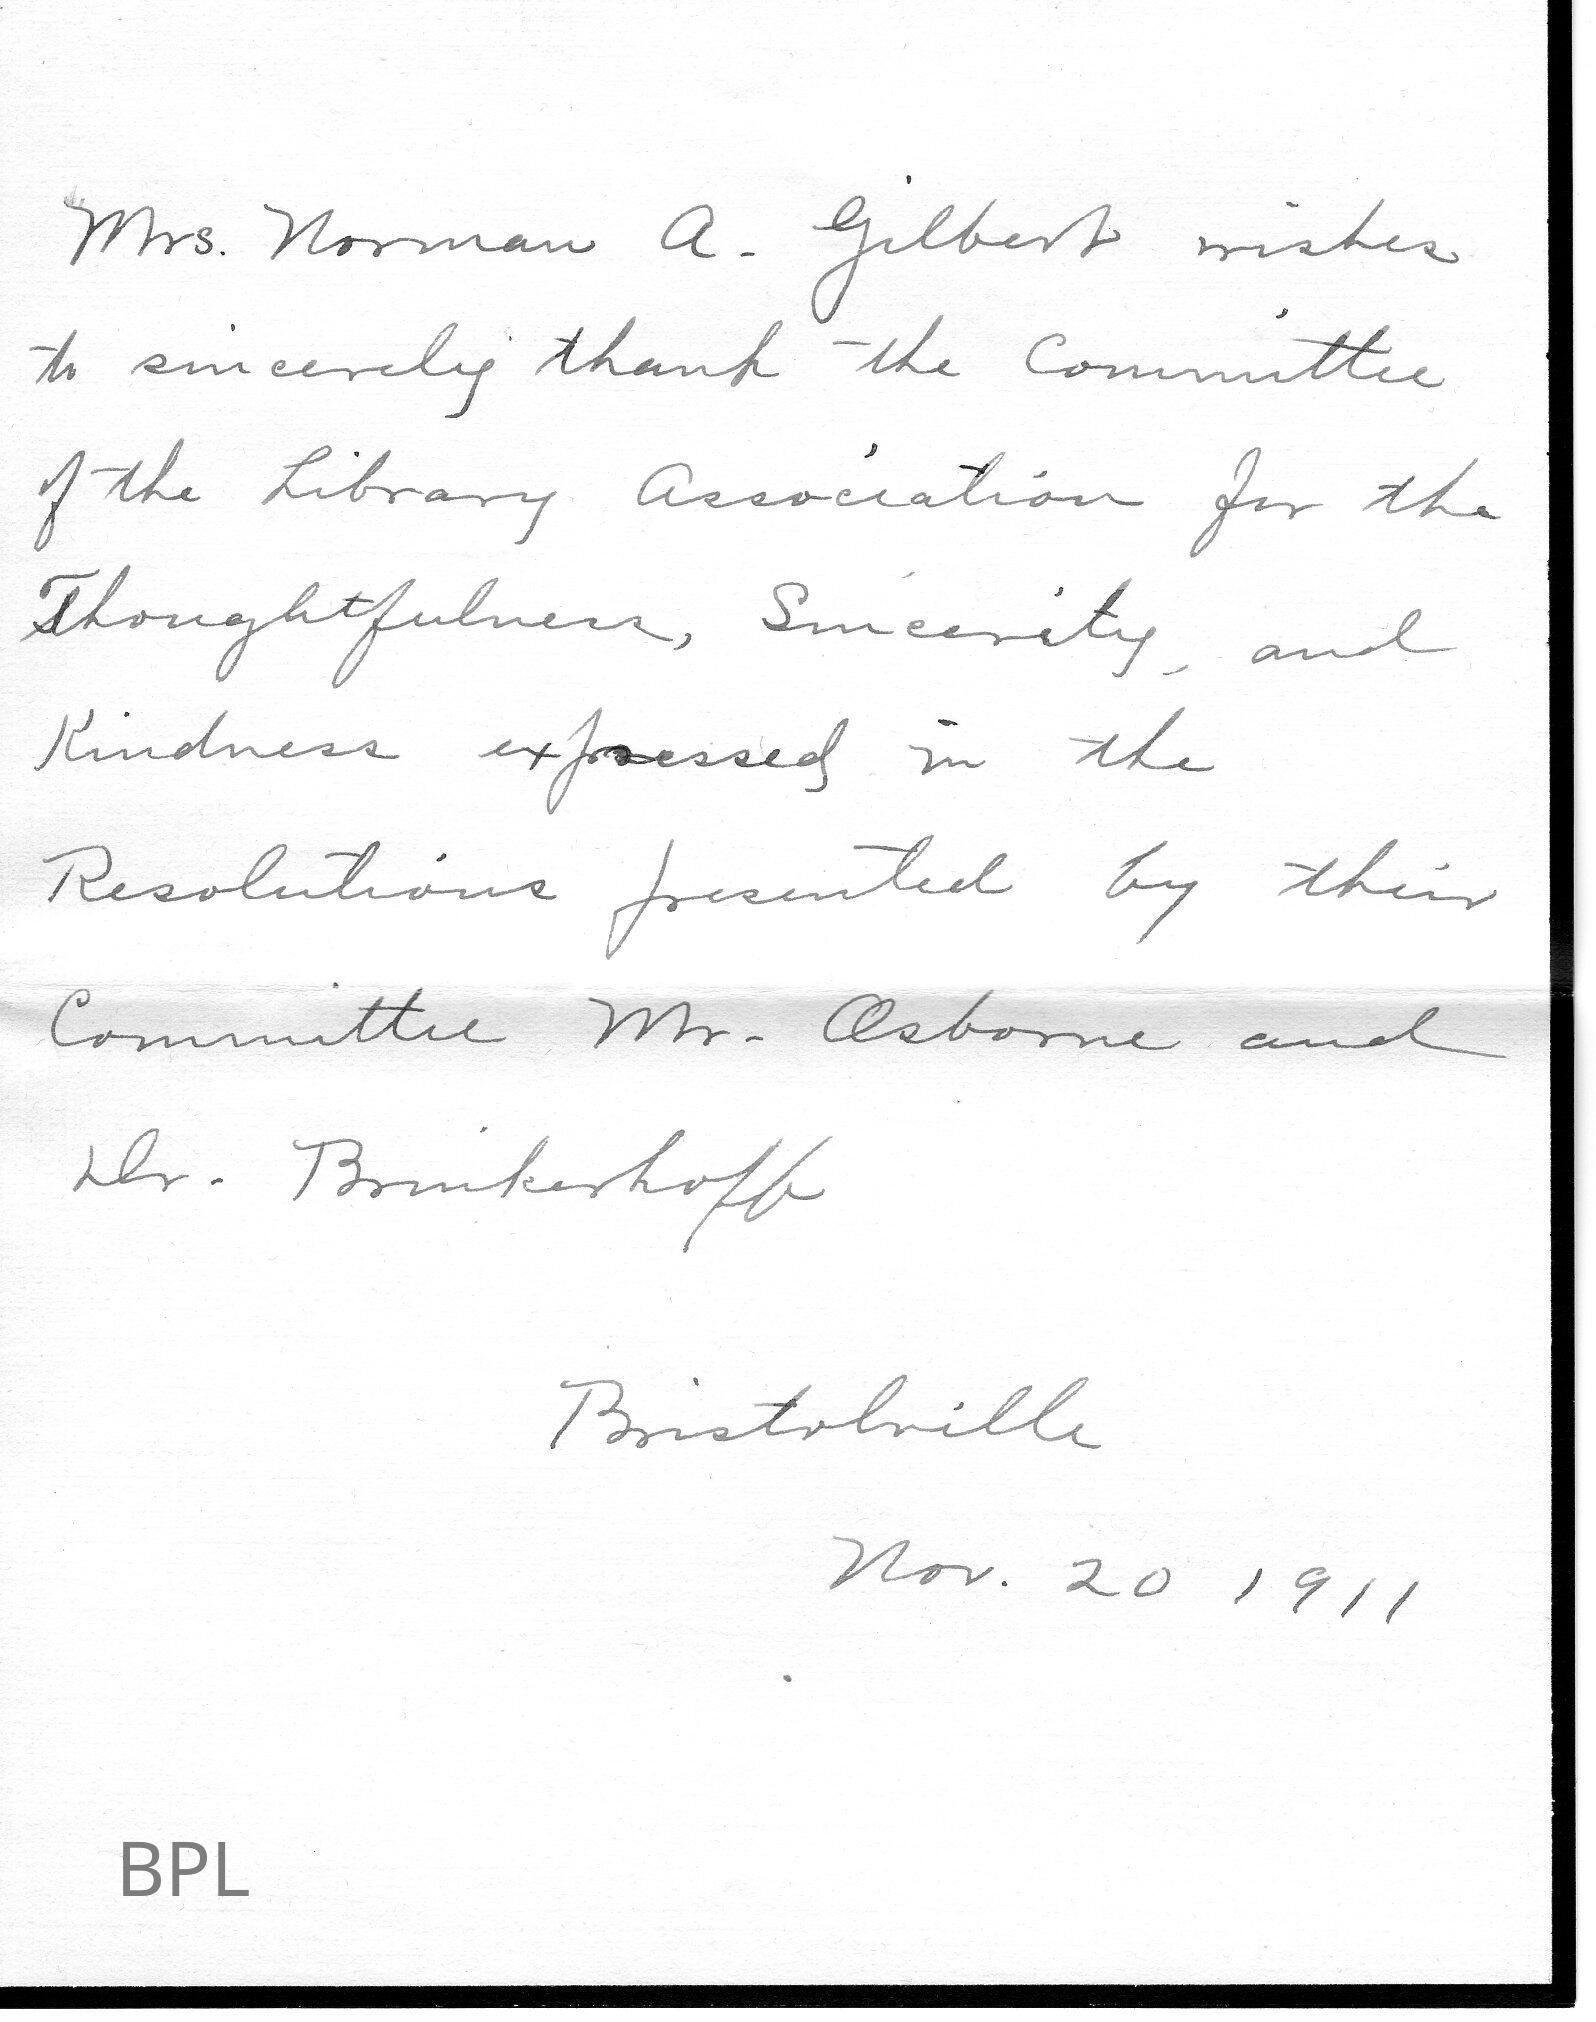 Mrs. Norman A. Gilbert wishes
to sincerely thank the Committee
of the Library Association for the
Thoughtfulness, Sincerity, and
Kindness expressed in the
Resolutions presented by their
Committee Mr. Osborne and
Dr. Brinkerhoff
Bristolville
Nov. 20 1911
BPL